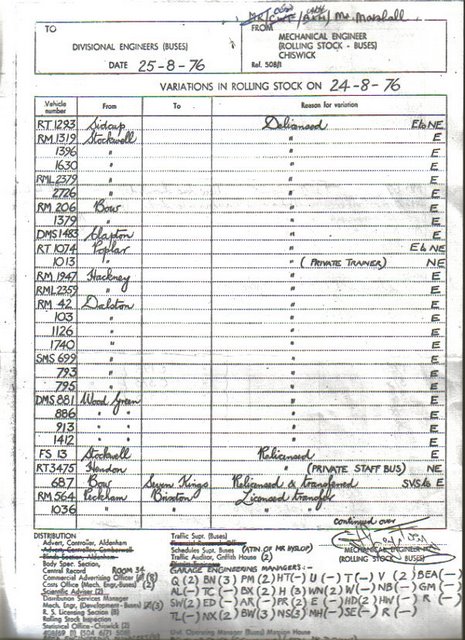 Mr. Marshall
TO
FROM
DIVISIONAL ENGINEERS (BUSES)
MECHANICAL ENGINEER
(ROLLING STOCK - BUSES)
CHISWICK
DATE 25-8-76
Ref. 508/1
VARIATIONS IN ROLLING STOCK ON 24-8-76
Vehicle number From To Reason for variation
RT 1293 Sidcup Delicensed E to NE
RM 1319 Stockwell " E
1396 " " E
1630 " " E
RML 2379 " " E
2726 " " E
RM 206 Bow " E
1379 " " E
DMS 1483 Clapton " E
RT 1074 Poplar " E to NE
1013 " " (PRIVATE TRAINER) NE
RM 1947 Hackney " E
RML 2359 " " E
RM 42 Dalston " E
103 " " E
1126 " " E
1740 " " E
SMS 699 " " E
793 " " E
795 " " E
DMS 881 Wood Green " E
886 " " " E
913 " " " E
1412 " " " E
FS 13 Stockwell Relicensed E
RT 3475 Hendon " (PRIVATE STAFF BUS) NE
687 Bow Seven Kings Relicensed & transferred SVS to E
RM 564 Peckham Brixton Licensed transfer E
1036 " " " E
continued over
DISTRIBUTION
Advert, Controller, Aldenham
Advert, Controller, Camberwell
Blinds Section, Aldenham
Body Spec. Section
Central Record ROOM 34
Commercial Advertising Officer
Costs Office (Mech. Engr.-Buses) (2)
Scientific Adviser (2)
Distribution Services Manager
Mech. Engr, (Development - Buses) (3)
R. S. Licensing Section (B)
Rolling Stock Inspection
Statistical Office - Chiswick (2)
Traffic Supt. (Buses)
Schedules Supt. Buses (ATN. OF MR HYSLOP)
Traffic Auditor, Griffith House (2)
MECHANICAL ENGINEER
(ROLLING STOCK - BUSES)
GARAGE ENGINEERING MANAGERS:-
Q (2) BN (3) PM (2) HT (-) U (-) T (-) V (2) BEA (-)
AL (-) TC (-) BX (2) H (3) WN (2) W (-) NB (-) GM (-)
SW (2) ED (-) AR (-) PR (2) E (-) HD (2) HW (-) R (-)
TL (-) NX (2) BW (3) NS (3) MH (-) SE (-) R (-)